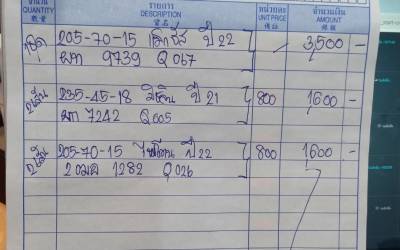 จำนวน รายการ หน่วยละ จำนวนเงิน
QUANTITY DESCRIPTION UNIT PRICE AMOUNT
數量 貨名 價銀 銀額
1ชุด 205-70-15 ปี 22 3,500 -
9739 Q067
2เส้น 235-45-18 มิชลิน ปี 21 800 1600 -
7242 Q005
2เส้น 205-70-15 ปี 22 800 1600 -
2 1282 Q026